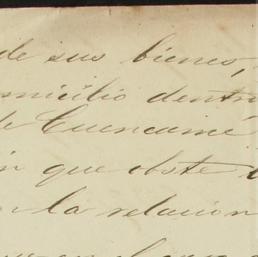 de sus bienes,
domicilio dentr
de Cuencamé
n que obste
n la relacion